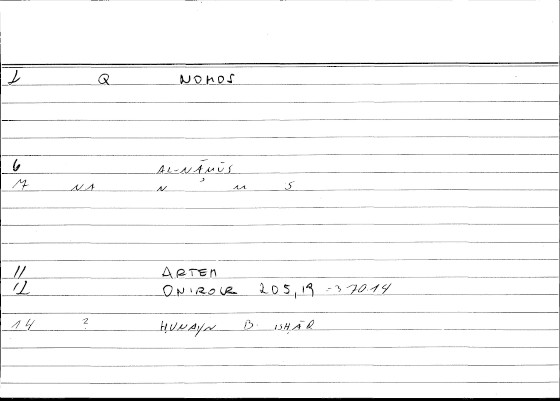 1 Q NOMOS
6 AL-NĀMŪS
M NA N ' M S
11 ARTEM
12 ONIROCR 205,19 = 370 14
14 ? HUNAYN B. ISHĀQ